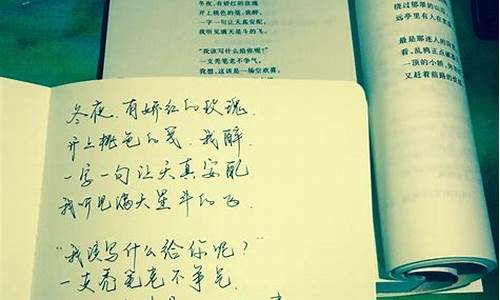 冬夜，有娇红的玫瑰
开上桃色的笺，我醉，
一字一句让天真安配
我听见满天星斗的飞。
“我该写什么给你呢？”
一支秃笔老不争气，
我想，这该是一场空欢喜。
绕过郁翠的
远亭里有人在
最是那迷人的
看，乱鸦正点
一顶的小轿，
又赶着前路的
冬夜，有娇红的玫瑰
开上桃色的笺，我醉，
一字一句让天真安配
我听见满天星斗的飞。
“我该写什么给你呢？”
一支秃笔老不争气